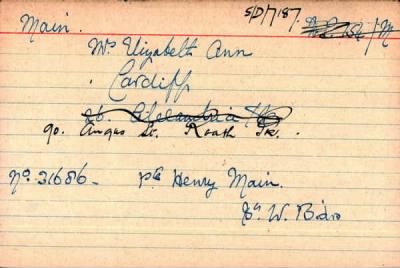 S/D/7187.
Main.
Mrs Elizabeth Ann
Cardiff
26. Alexandria
90. Angus St. Roath Pk.
No. 31686. Pte Henry Main.
W. Bdrs